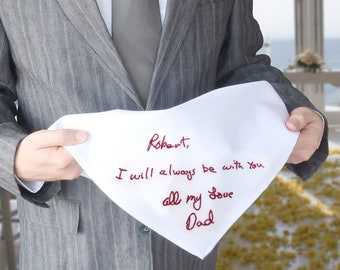 Robert,
I will always be with you
all my Love
Dad